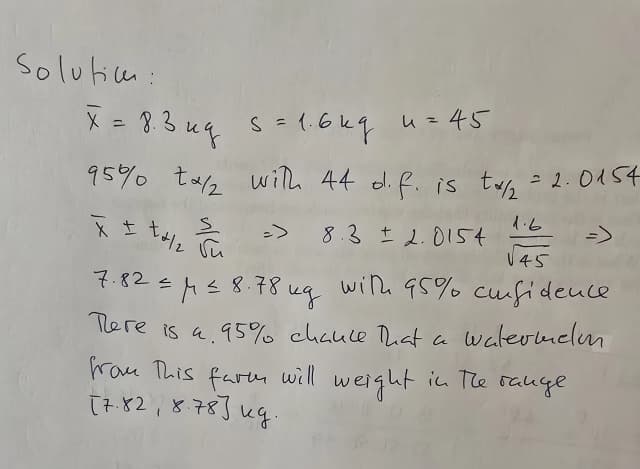 Solution:
x̄ = 8.3 kg s = 1.6 kg n = 45
95% tα/2 with 44 d.f. is tα/2 = 2.0154
x̄ ± tα/2 s/√n => 8.3 ± 2.0154 1.6/√45 =>
7.82 ≤ μ ≤ 8.78 kg with 95% confidence
There is a 95% chance that a watermelon
from this farm will weight in the range
[7.82, 8.78] kg.